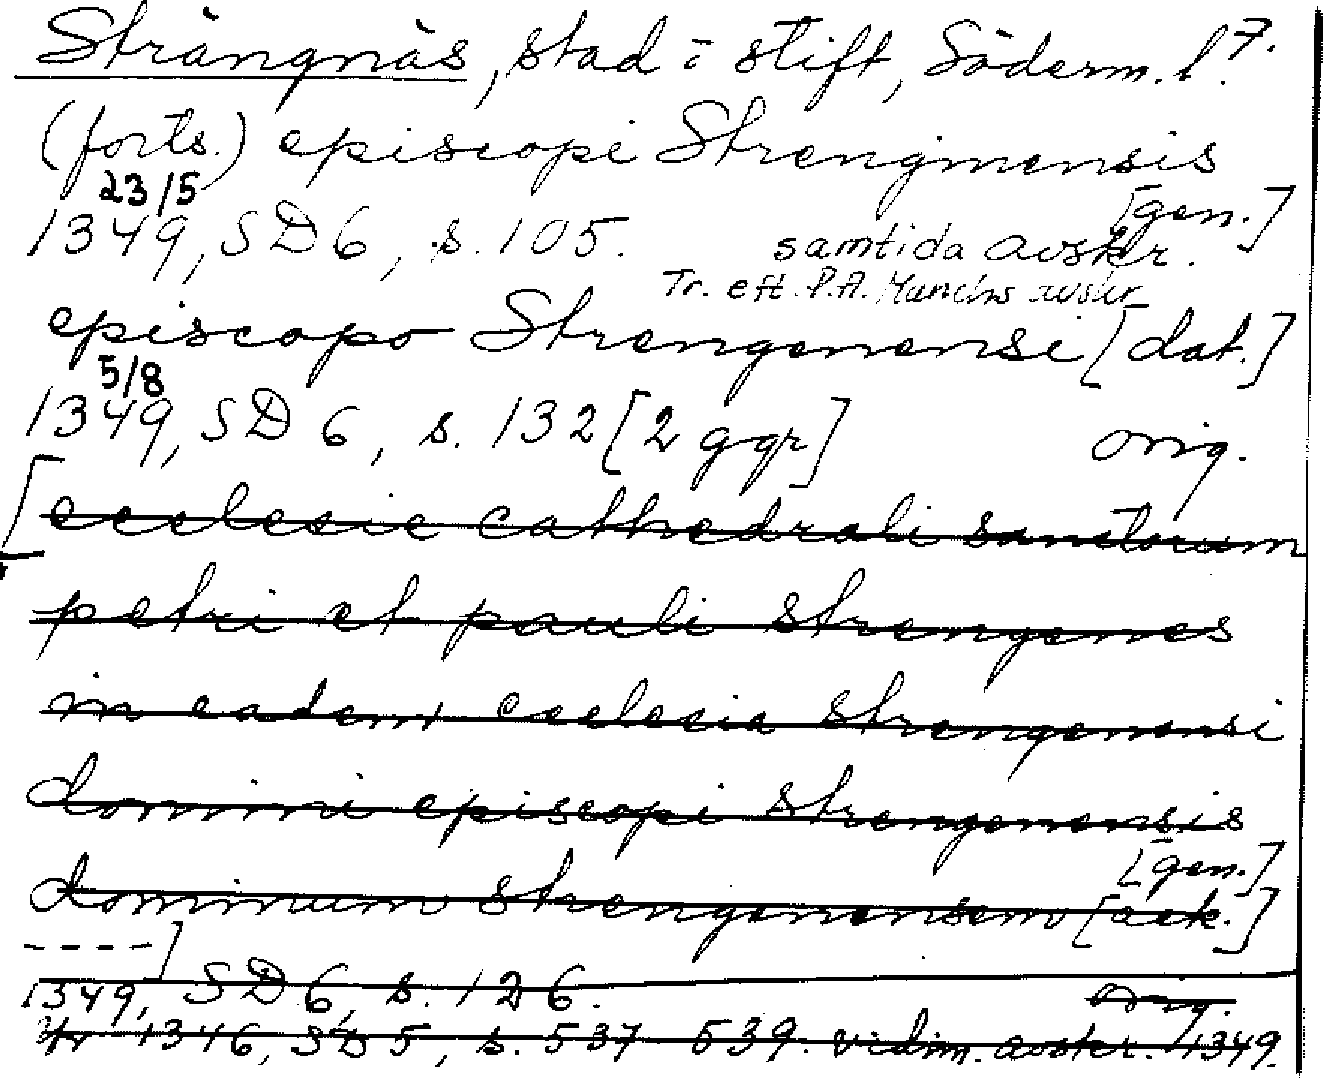 Strängnäs, stad i stift, Söderm. l. 7.
(forts.) episcopi Strengmensis
[gen.]
23/5
1349, SD 6, s. 105. samtida avskr.
Tr. eft. P.A. Munchs avskr
episcopo Strengenensi [dat.]
5/8
1349, SD 6, s. 132 [2 ggr] orig.
[ecclesie cathedrali sanctorum
petri et pauli strengenes
in eadem ecclesia strengenensi
domini episcopi strengenensis
[gen.]
dominum strengenensem [ack.]
----]
1349, SD 6, s. 126. orig.
1346, SD 5, s. 537 539. vidim. avskr. 1349.